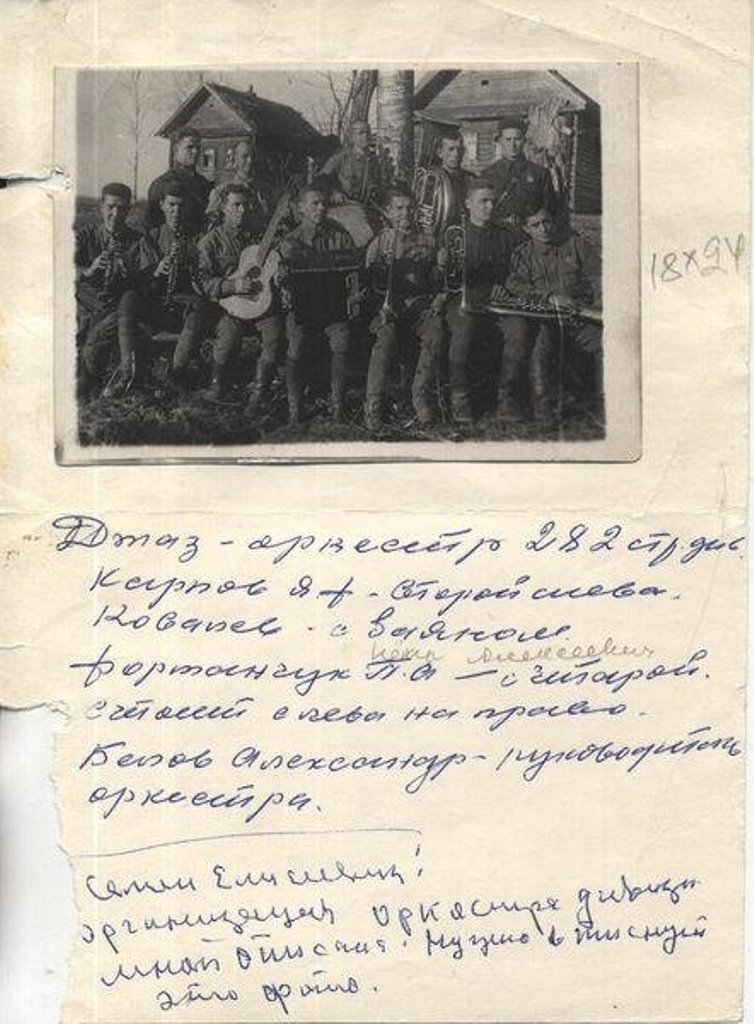 18×24
Джаз-оркестр 282 стр. див.
Карпов Я Ф - второй слева.
Ковалев - с баяном.
Алексеевич
Фортанчук П.А - с гитарой.
стоит слева на право.
Белов Александр - руководитель
оркестра.
Семен Елисеевич!
организация оркестра дивизии
мной описана. Нужно
это фото.